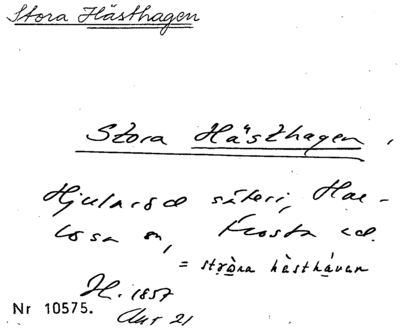 Stora Hästhagen
Stora Hästhagen,
Hjularöd säteri, Har-
lösa sn, Frosta hd.
= strọ̀ra hàsthávan
H. 1857
Nr 10575.